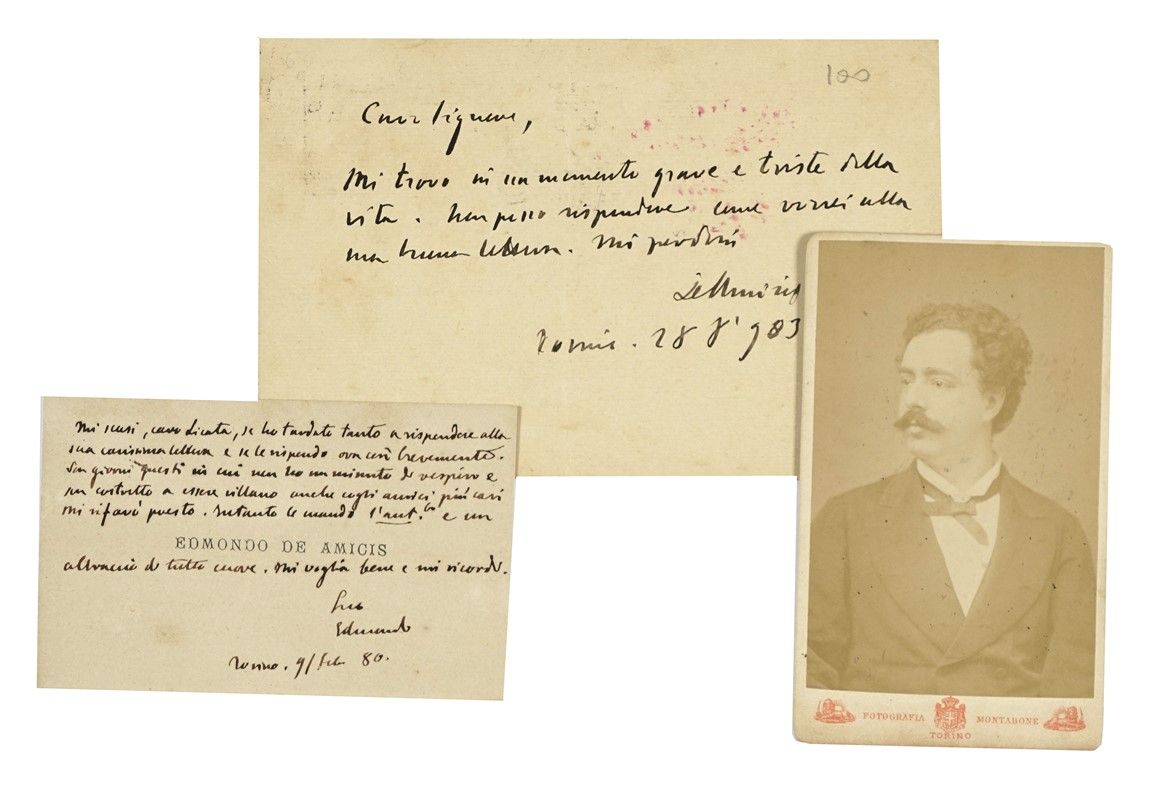 100
Caro Signore,
Mi trovo in un momento grave e triste della
vita. Non posso rispondere come vorrei alla
sua buona lettera. Mi perdoni
De Amicis
Torino. 28 8
Mi scusi, caro Licata, se ho tardato tanto a rispondere alla
sua carissima lettera e se le rispondo ora così brevemente.
Son giorni questi in cui non ho un minuto di respiro e
son costretto a essere villano anche cogli amici più cari
Mi rifarò presto. Intanto le mando l'aut.º e un
EDMONDO DE AMICIS
abbraccio di tutto cuore. Mi voglia bene e mi ricordi.
Suo
Edmondo
Torino. 9/Feb 80.
FOTOGRAFIA MONTABONE
TORINO